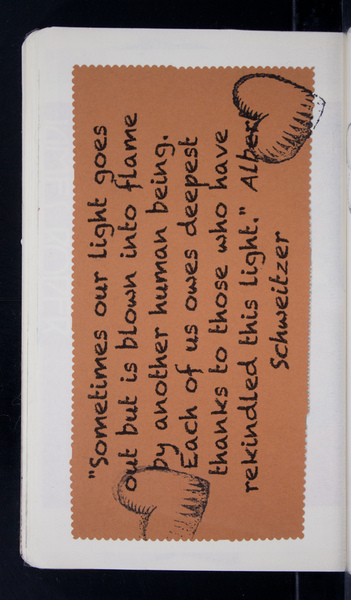 "Sometimes our light goes
out but is blown into flame
by another human being.
Each of us owes deepest
thanks to those who have
rekindled this light." Albert
Schweitzer